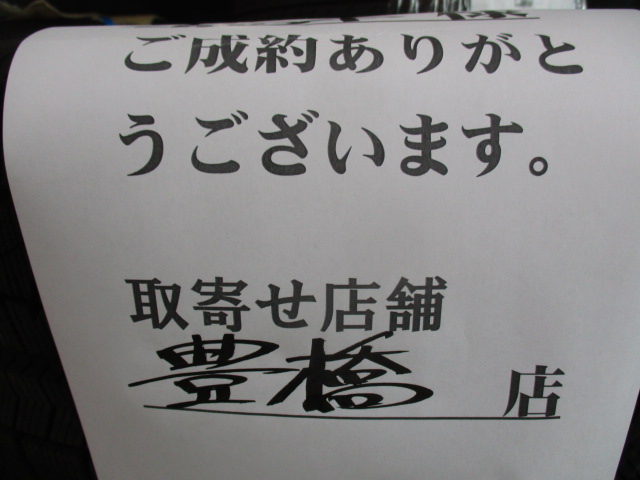 様
ご成約ありがと
うございます。
取寄せ店舗
豊橋 店